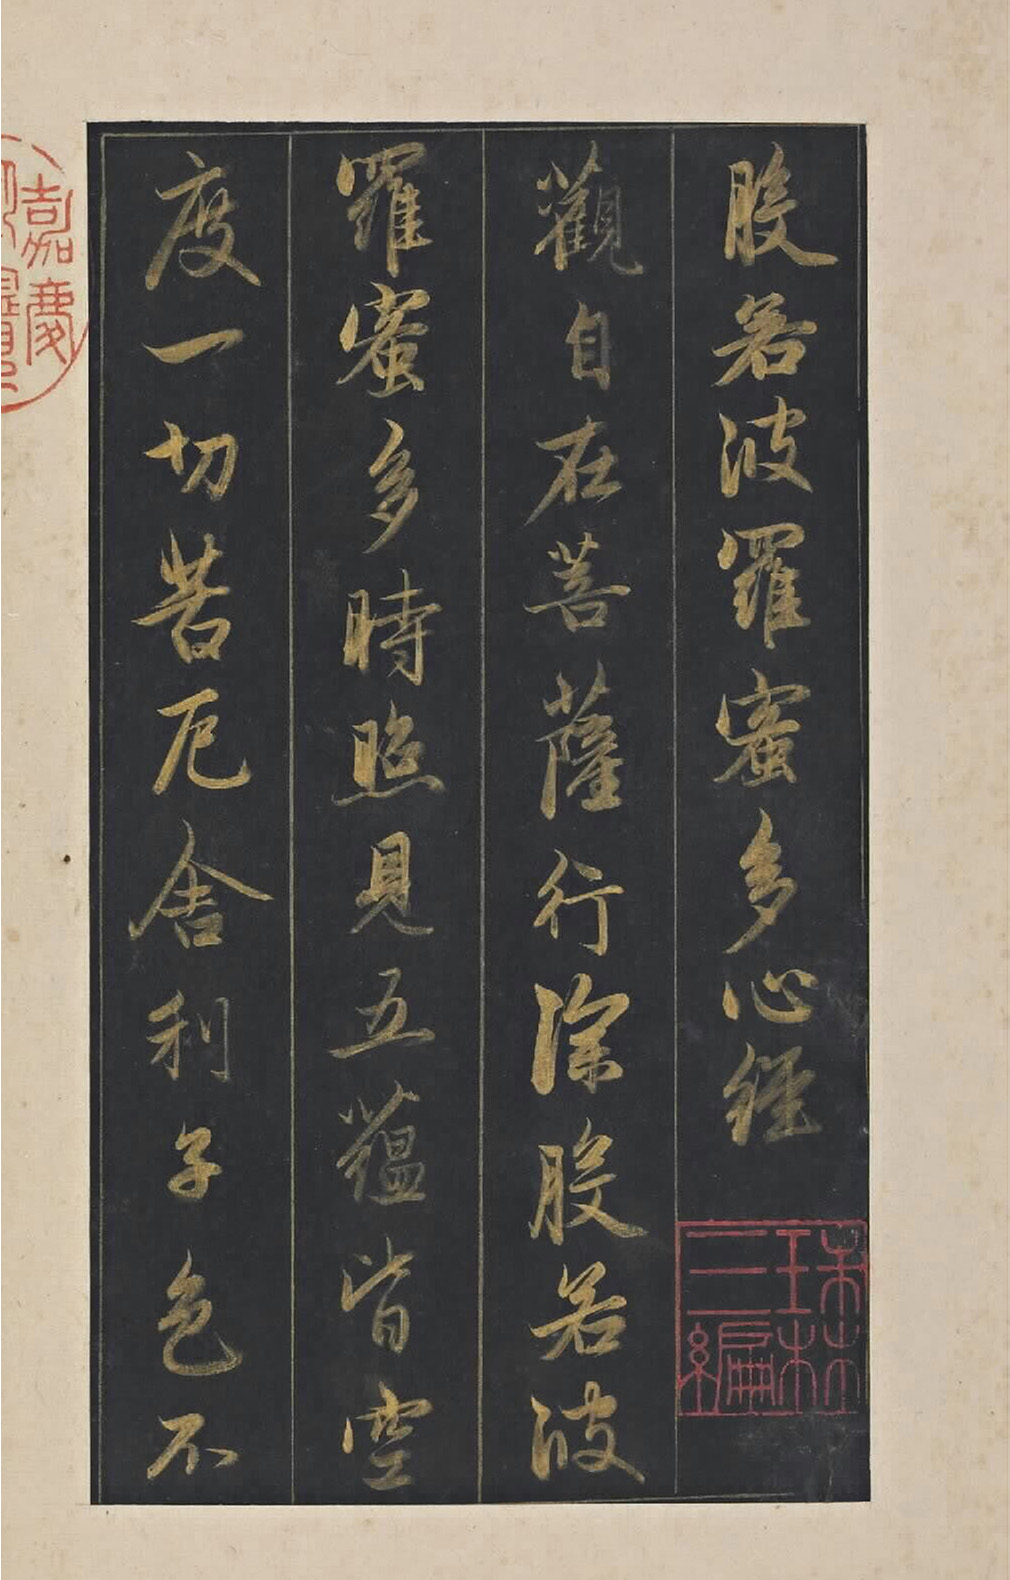 般若波羅蜜多心經
觀自在菩薩行深般若波
羅蜜多時照見五蘊皆空
度一切苦厄舍利子色不
珠林
三編
嘉慶